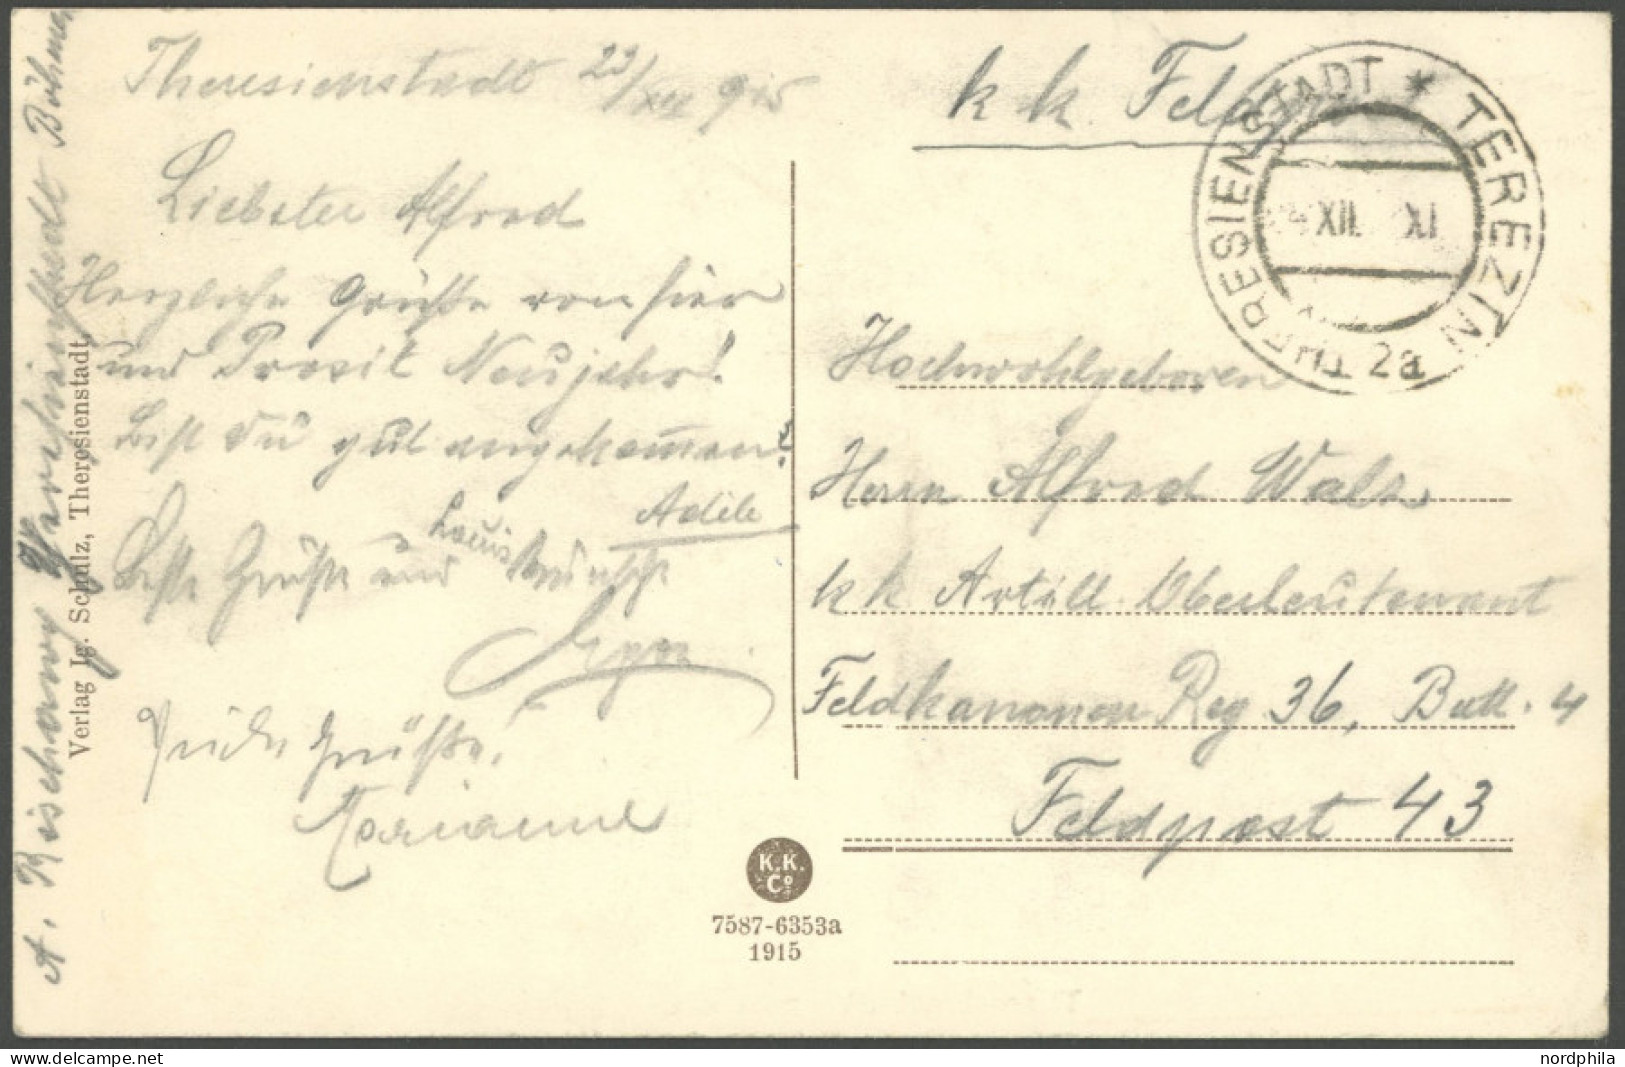 Theresienstadt 23/XII 915
k k Feld
THERESIENSTADT * TEREZIN
XII. XI
2a
Liebster Alfred
Herzliche Grüße von hier
und Prosit Neujahr!
Bist Du gut angekommen?
Adéle
Beste Grüße und Louis Wünsche
Grüße,
Marianne
Hochwohlgeboren
Herrn Alfred Walz
k k Artill. Oberleutenant
Feldkanonen Reg 36, Batt. 4
Feldpost 43
A. Theresienstadt Böhmen
Verlag Ig. Schulz, Theresienstadt.
K.K.
Co
7587-6353a
1915
delcampe.net
nordphila